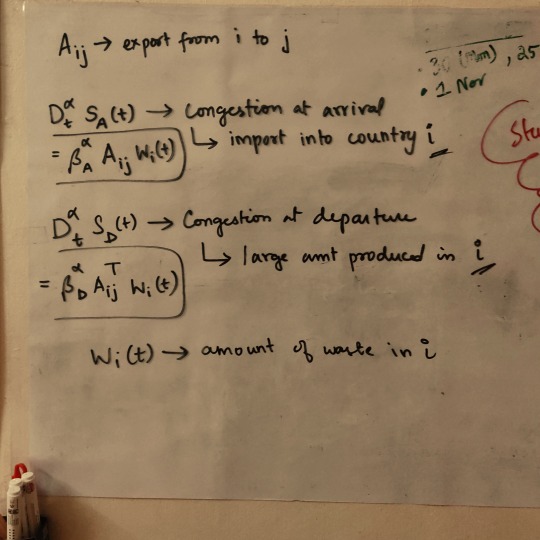 A_ij → export from i to j
30 (Mon), 25
• 1 Nov
D_t^α S_A(t) → Congestion at arrival
= β_A^α A_ij W_i(t) ↳ import into country i
Stu
D_t^α S_D(t) → Congestion at departure
↳ large amt produced in i
= β_D^α A_ij^T W_i(t)
W_i(t) → amount of waste in i